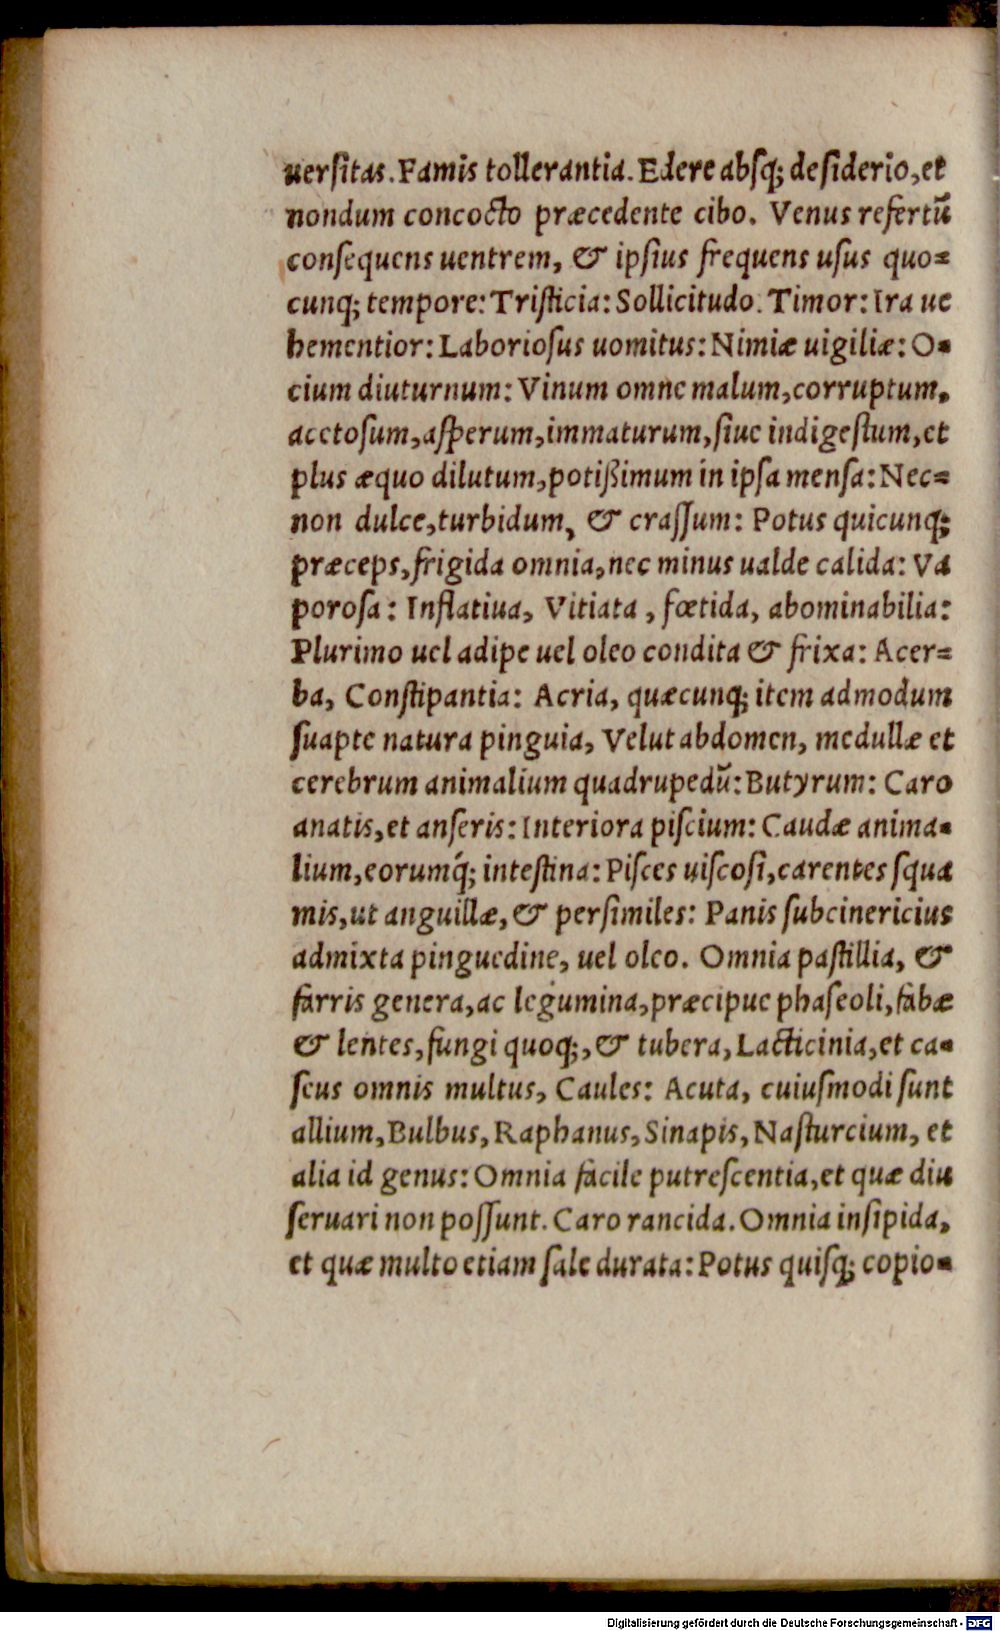 uerſitas. Famis tollerantia. Edere abſq; deſiderio, et
nondum concocto præcedente cibo. Venus refertũ
conſequens uentrem, & ipſius frequens uſus quo=
cunq; tempore: Triſticia: Sollicitudo. Timor: Ira ue
hementior: Laborioſus uomitus: Nimiæ uigiliæ: O=
cium diuturnum: Vinum omne malum, corruptum,
acetoſum, aſperum, immaturum, ſiue indigeſtum, et
plus æquo dilutum, potißimum in ipſa menſa: Nec=
non dulce, turbidum, & craſſum: Potus quicunq;
præceps, frigida omnia, nec minus ualde calida: Va
poroſa: Inflatiua, Vitiata, fœtida, abominabilia:
Plurimo uel adipe uel oleo condita & frixa: Acer=
ba, Conſtipantia: Acria, quæcunq; item admodum
ſuapte natura pinguia, Velut abdomen, medullæ et
cerebrum animalium quadrupedũ: Butyrum: Caro
anatis, et anſeris: Interiora piſcium: Caudæ anima=
lium, eorumq́; inteſtina: Piſces uiſcoſi, carentes ſqua
mis, ut anguillæ, & perſimiles: Panis ſubcinericius
admixta pinguedine, uel oleo. Omnia paſtillia, &
farris genera, ac legumina, præcipue phaſeoli, fabæ
& lentes, fungi quoq;, & tubera, Lacticinia, et ca=
ſeus omnis multus, Caules: Acuta, cuiuſmodi ſunt
allium, Bulbus, Raphanus, Sinapis, Naſturcium, et
alia id genus: Omnia facile putreſcentia, et quæ diu
ſeruari non poſſunt. Caro rancida. Omnia inſipida,
et quæ multo etiam ſale durata: Potus quiſq; copio=
Digitalisierung gefördert durch die Deutsche Forschungsgemeinschaft - DFG